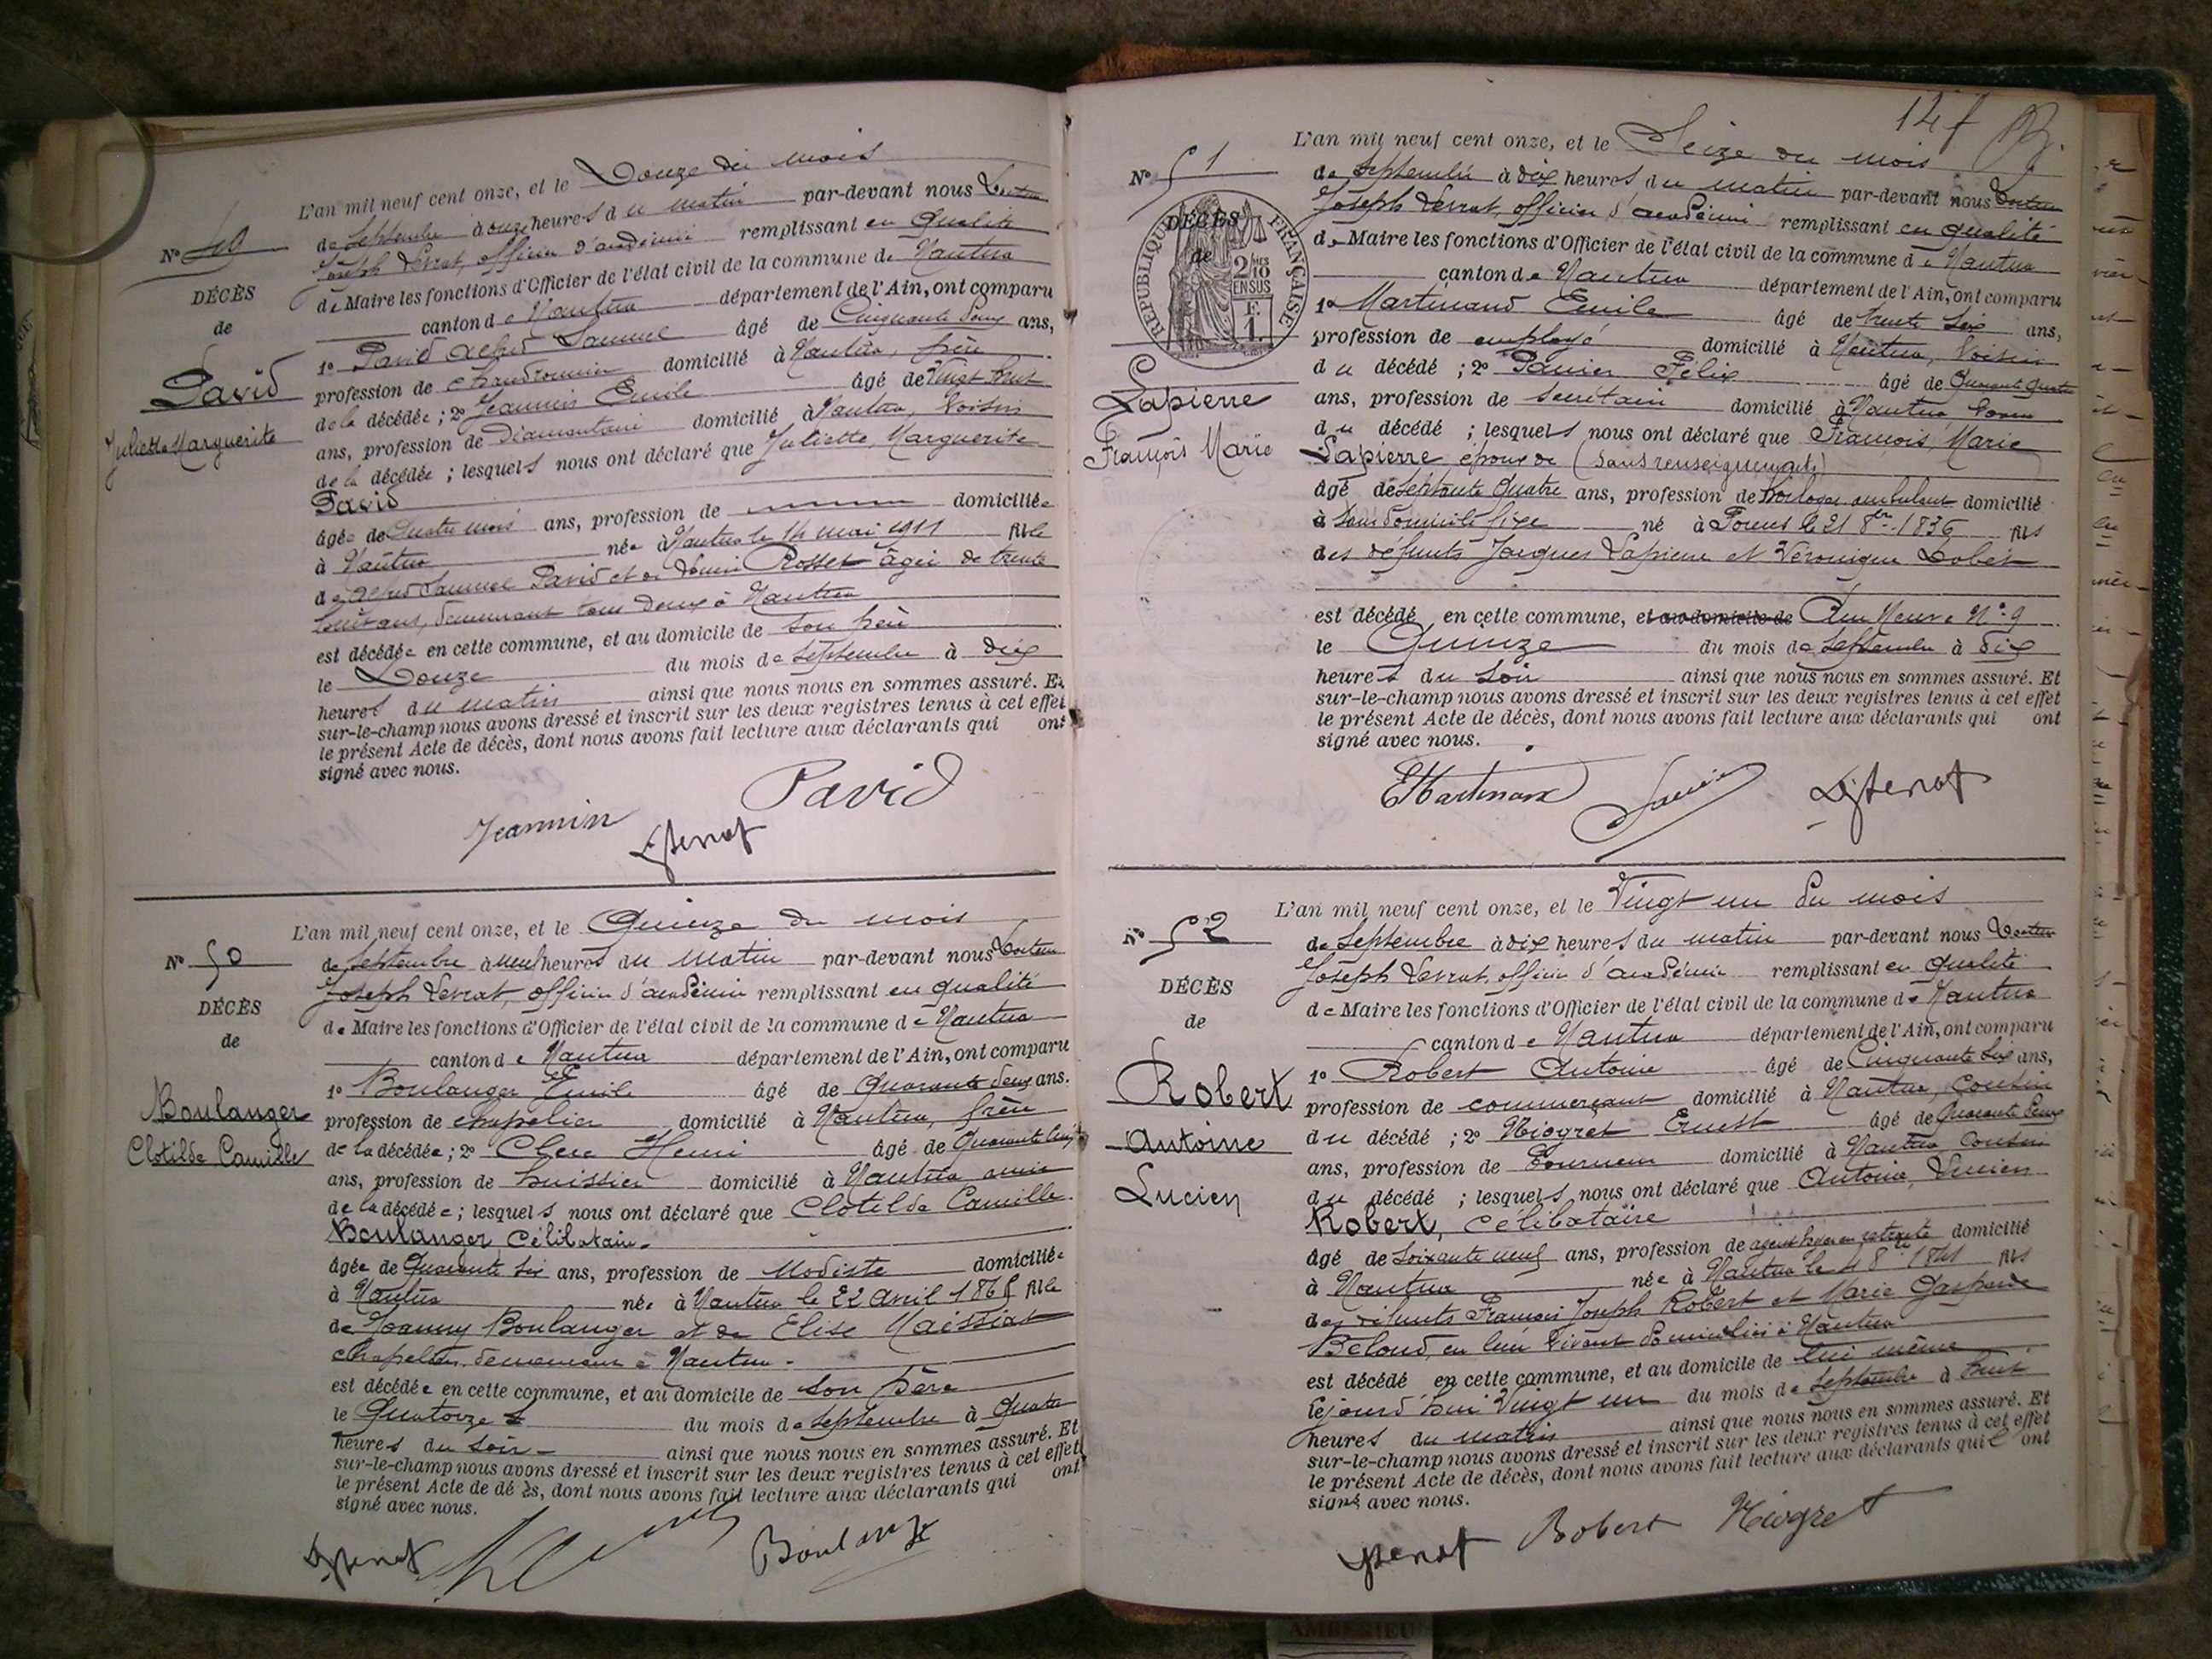 L'an mil neuf cent onze, et le Douze du mois
de Septembre à onze heures du matin par-devant nous Docteur
Joseph Levrat, officier d'académie remplissant en qualité
de Maire les fonctions d'Officier de l'état civil de la commune de Nantua
canton de Nantua département de l'Ain, ont comparu
1° David Alfred Samuel âgé de Cinquante deux ans,
profession de chaudronnier domicilié à Nantua, père
de la décédée ; 2° Jeannin Emile âgé de Vingt huit
ans, profession de Diamantaire domicilié à Nantua, Voisin
de la décédée ; lesquels nous ont déclaré que Juliette, Marguerite
David
âgée de Quatre mois ans, profession de domiciliée
à Nantua née à Nantua le 14 mai 1911 fille
de Alfred Samuel David et de Rosset âgée de trente
huit ans, demeurant tous deux à Nantua
est décédée en cette commune, et au domicile de son père
le Douze du mois de Septembre à dix
heures du matin ainsi que nous nous en sommes assuré. Et
sur-le-champ nous avons dressé et inscrit sur les deux registres tenus à cet effet
le présent Acte de décès, dont nous avons fait lecture aux déclarants qui ont
signé avec nous.
N° 49
DÉCÈS
de
David
Juliette Marguerite
David
Jeannin
L'an mil neuf cent onze, et le Quinze du mois
de Septembre à neuf heures du matin par-devant nous Docteur
Joseph Levrat, officier d'académie remplissant en qualité
de Maire les fonctions d'Officier de l'état civil de la commune de Nantua
canton de Nantua département de l'Ain, ont comparu
1° Boulanger Emile âgé de Quarante deux ans.
profession de chapelier domicilié à Nantua, frère
de la décédée ; 2° Clerc Henri âgé de Quarante
ans, profession de huissier domicilié à Nantua ami
de la décédée ; lesquels nous ont déclaré que Clotilde Camille
Boulanger, Célibataire
âgée de Quarante six ans, profession de Modiste domiciliée
à Nantua née à Nantua le 22 avril 1865 fille
de Joanny Boulanger et de Elise Maissiat
chapeliers demeurant à Nantua -
est décédée en cette commune, et au domicile de son père
le Quatorze du mois de Septembre à Quatre
heures du soir - ainsi que nous nous en sommes assuré. Et
sur-le-champ nous avons dressé et inscrit sur les deux registres tenus à cet effet
le présent Acte de dé ès, dont nous avons fait lecture aux déclarants qui ont
signé avec nous.
N° 50
DÉCÈS
de
Boulanger
Clotilde Camille
Boulanger
L'an mil neuf cent onze, et le Seize du mois
de Septembre à dix heures du matin par-devant nous Docteur
Joseph Levrat, officier d'académie remplissant en qualité
de Maire les fonctions d'Officier de l'état civil de la commune de Nantua
canton de Nantua département de l'Ain, ont comparu
1° Martinand Emile âgé de trente six ans,
profession de employé domicilié à Nantua, Voisin
du décédé ; 2° Félix âgé de Quarante quatre
ans, profession de Secrétaire domicilié à Nantua Voisin
du décédé ; lesquels nous ont déclaré que François, Marie
Lapierre époux de (sans renseignements)
âgé de Septante Quatre ans, profession de horloger ambulant domicilié
à Sans domicile fixe né à le 21 8bre 1836 fils
des défunts Jacques Lapierre et Véronique
est décédé en cette commune, et au domicile de Rue Neuve N° 9
le Quinze du mois de Septembre à dix
heures du soir ainsi que nous nous en sommes assuré. Et
sur-le-champ nous avons dressé et inscrit sur les deux registres tenus à cet effet
le présent Acte de décès, dont nous avons fait lecture aux déclarants qui ont
signé avec nous.
N° 51
DÉCÈS
de
RÉPUBLIQUE FRANÇAISE
2/10 EN SUS
F. 1.
Lapierre
François Marie
EMartinand
L'an mil neuf cent onze, et le Vingt un du mois
de Septembre à dix heures du matin par-devant nous Docteur
Joseph Levrat, officier d'académie remplissant en qualité
de Maire les fonctions d'Officier de l'état civil de la commune de Nantua
canton de Nantua département de l'Ain, ont comparu
1° Robert Antoine âgé de Cinquante six ans,
profession de commerçant domicilié à Nantua, Cousin
du décédé ; 2° Niogret Ernest âgé de Quarante deux
ans, profession de Tourneur domicilié à Nantua Cousin
du décédé ; lesquels nous ont déclaré que Antoine, Lucien
Robert, Célibataire
âgé de Soixante neuf ans, profession de agent voyer en retraite domicilié
à Nantua née à Nantua le 4 8bre 1841 fils
des défunts François Joseph Robert et Marie Gasparde
Beloud, en leur vivant domiciliés à Nantua
est décédé en cette commune, et au domicile de lui même
le jourd'hui Vingt un du mois de Septembre à huit
heures du matin ainsi que nous nous en sommes assuré. Et
sur-le-champ nous avons dressé et inscrit sur les deux registres tenus à cet effet
le présent Acte de décès, dont nous avons fait lecture aux déclarants qui ont
signé avec nous.
N° 52
DÉCÈS
de
Robert
Antoine
Lucien
Robert Niogret
AMBERIEU